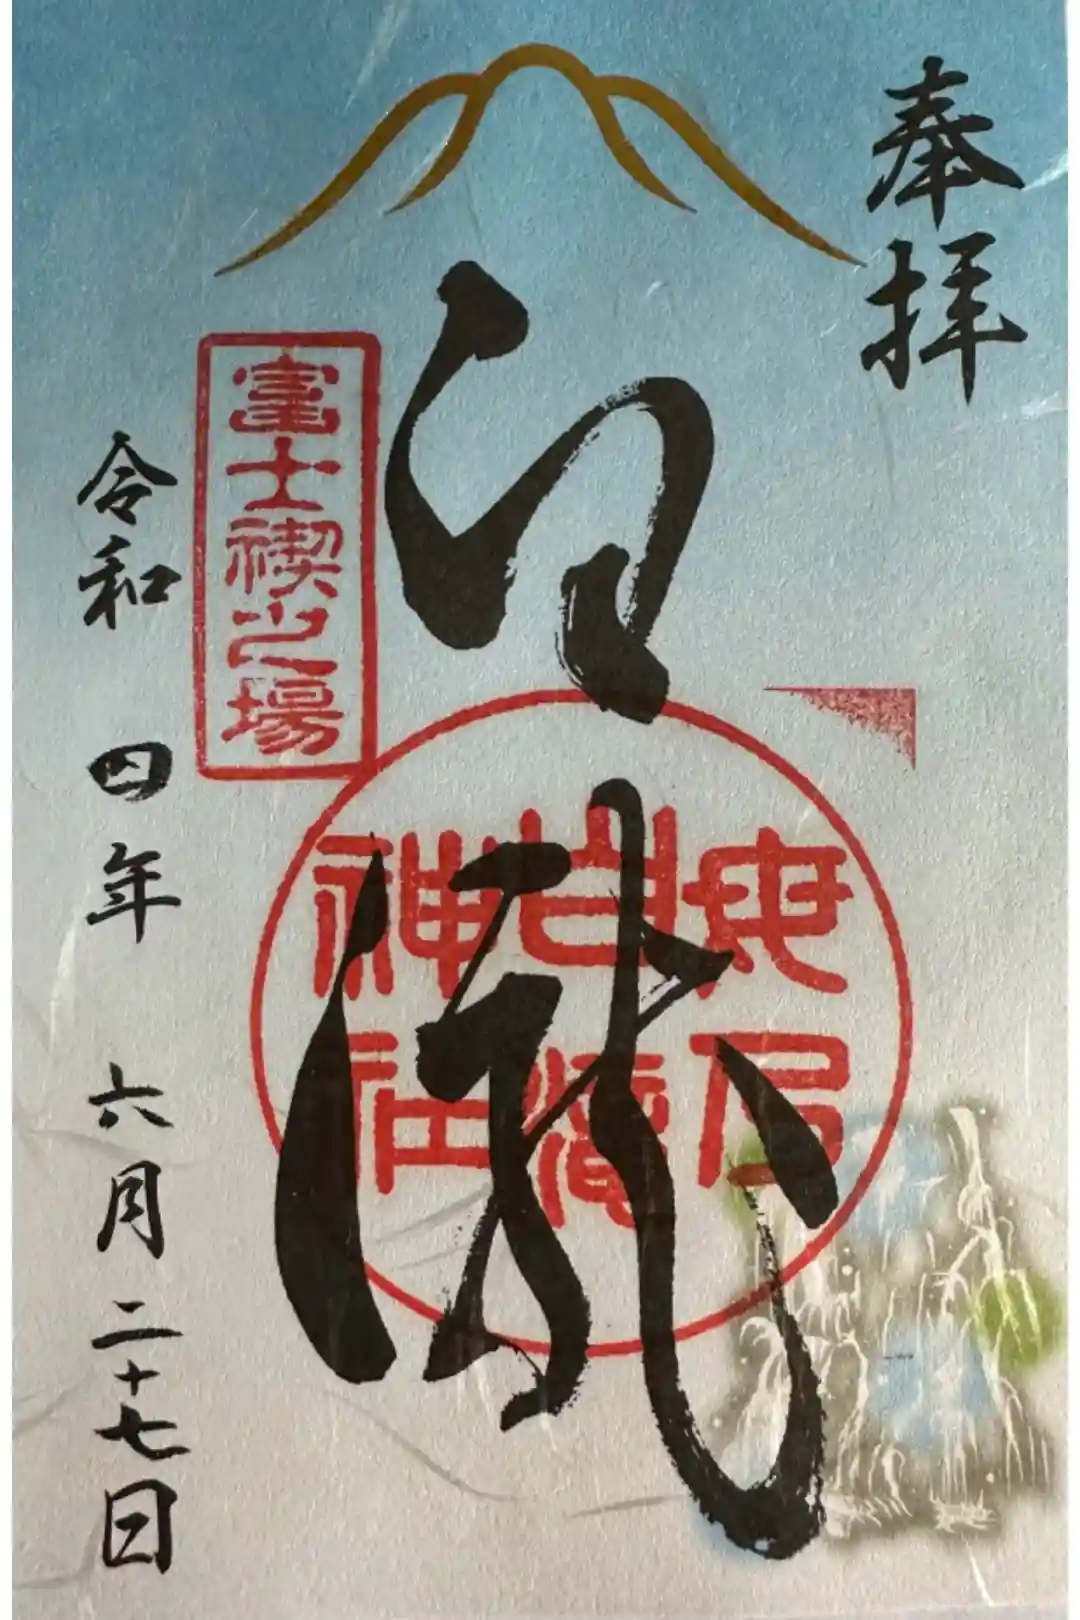 奉拝
白瀧
母乃
白瀧
神社
富士禊之場
令和四年六月二十七日